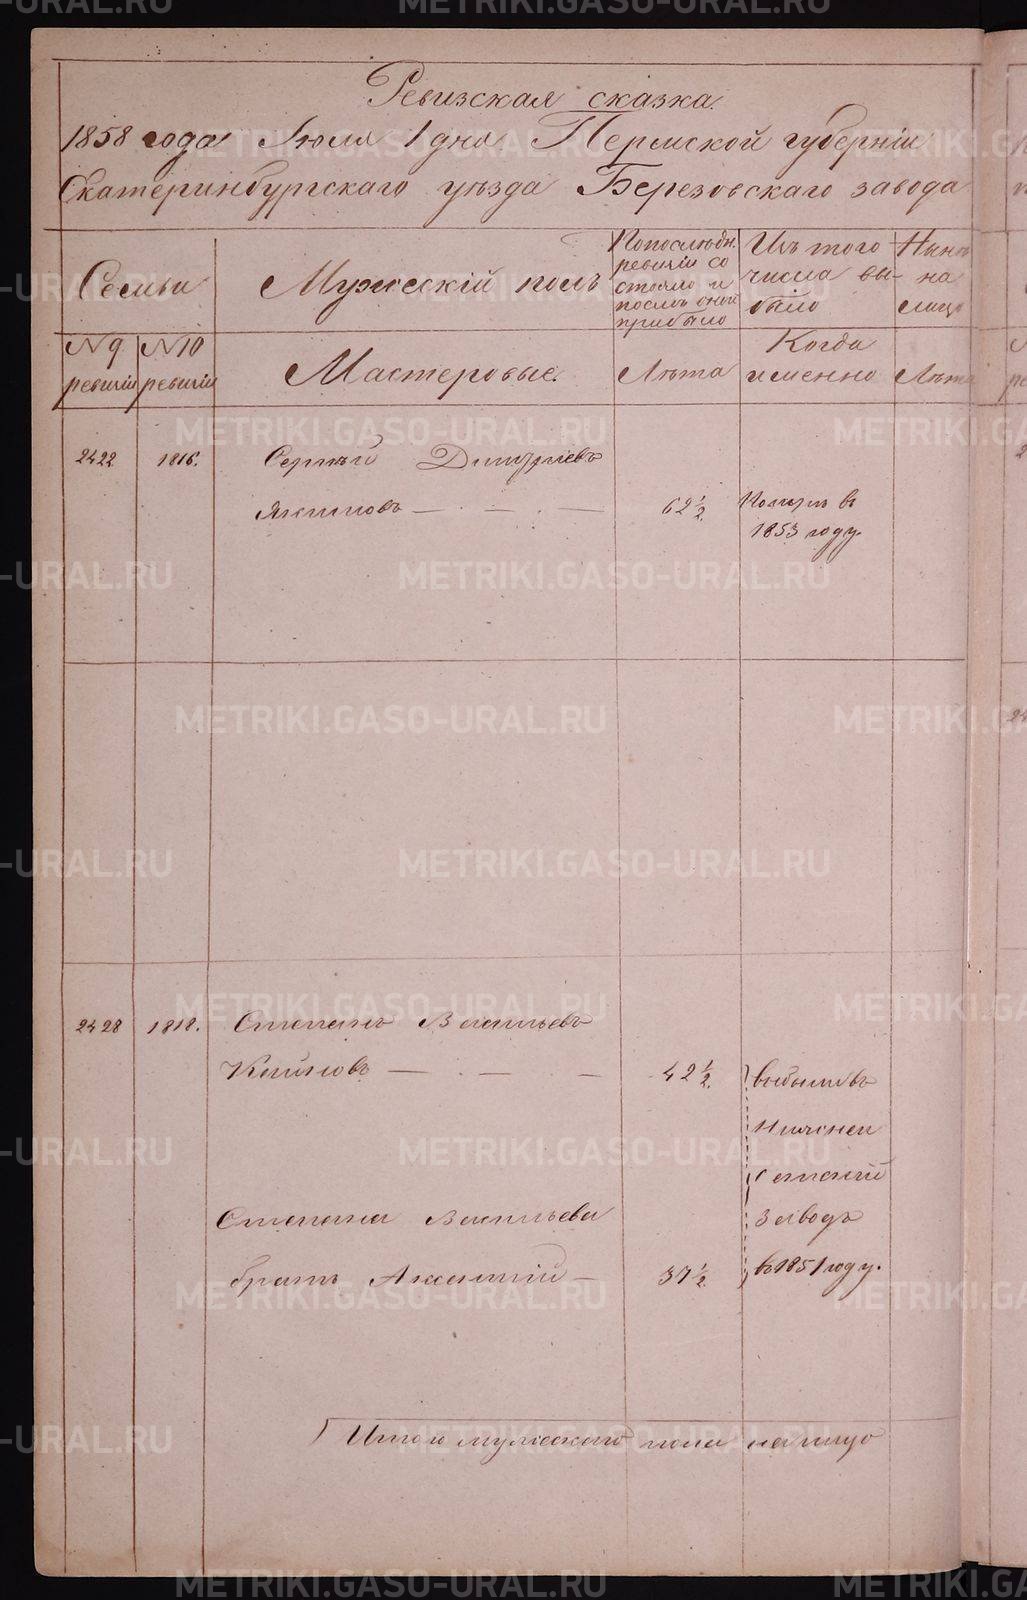 Ревизская сказка.
1858 года Июля 1 дня Пермской губерніи
Екатеринбургскаго уѣзда Березовскаго завода
Семьи
Мужескій полъ
По послѣдн.
ревизіи со
стояло и
послѣ оной
прибыло
Изъ того
числа вы-
было
Нынѣ
на
лицо
N 9
ревизіи
N 10
ревизіи
Мастеровые.
Лѣта
Когда
именно
Лѣта
2422 1816. Сергѣй Дмитріевъ
Якимовъ 62 1/2. Померъ въ
1853 году.
2428 1818. Степанъ Васильевъ
42 1/2. выбыли въ
Нижнеи
сетскій
Степана Васильева заводъ
братъ 37 1/2 въ 1851 году.
Итого мужескаго пола на лицо
METRIKI.GASO-URAL.RU